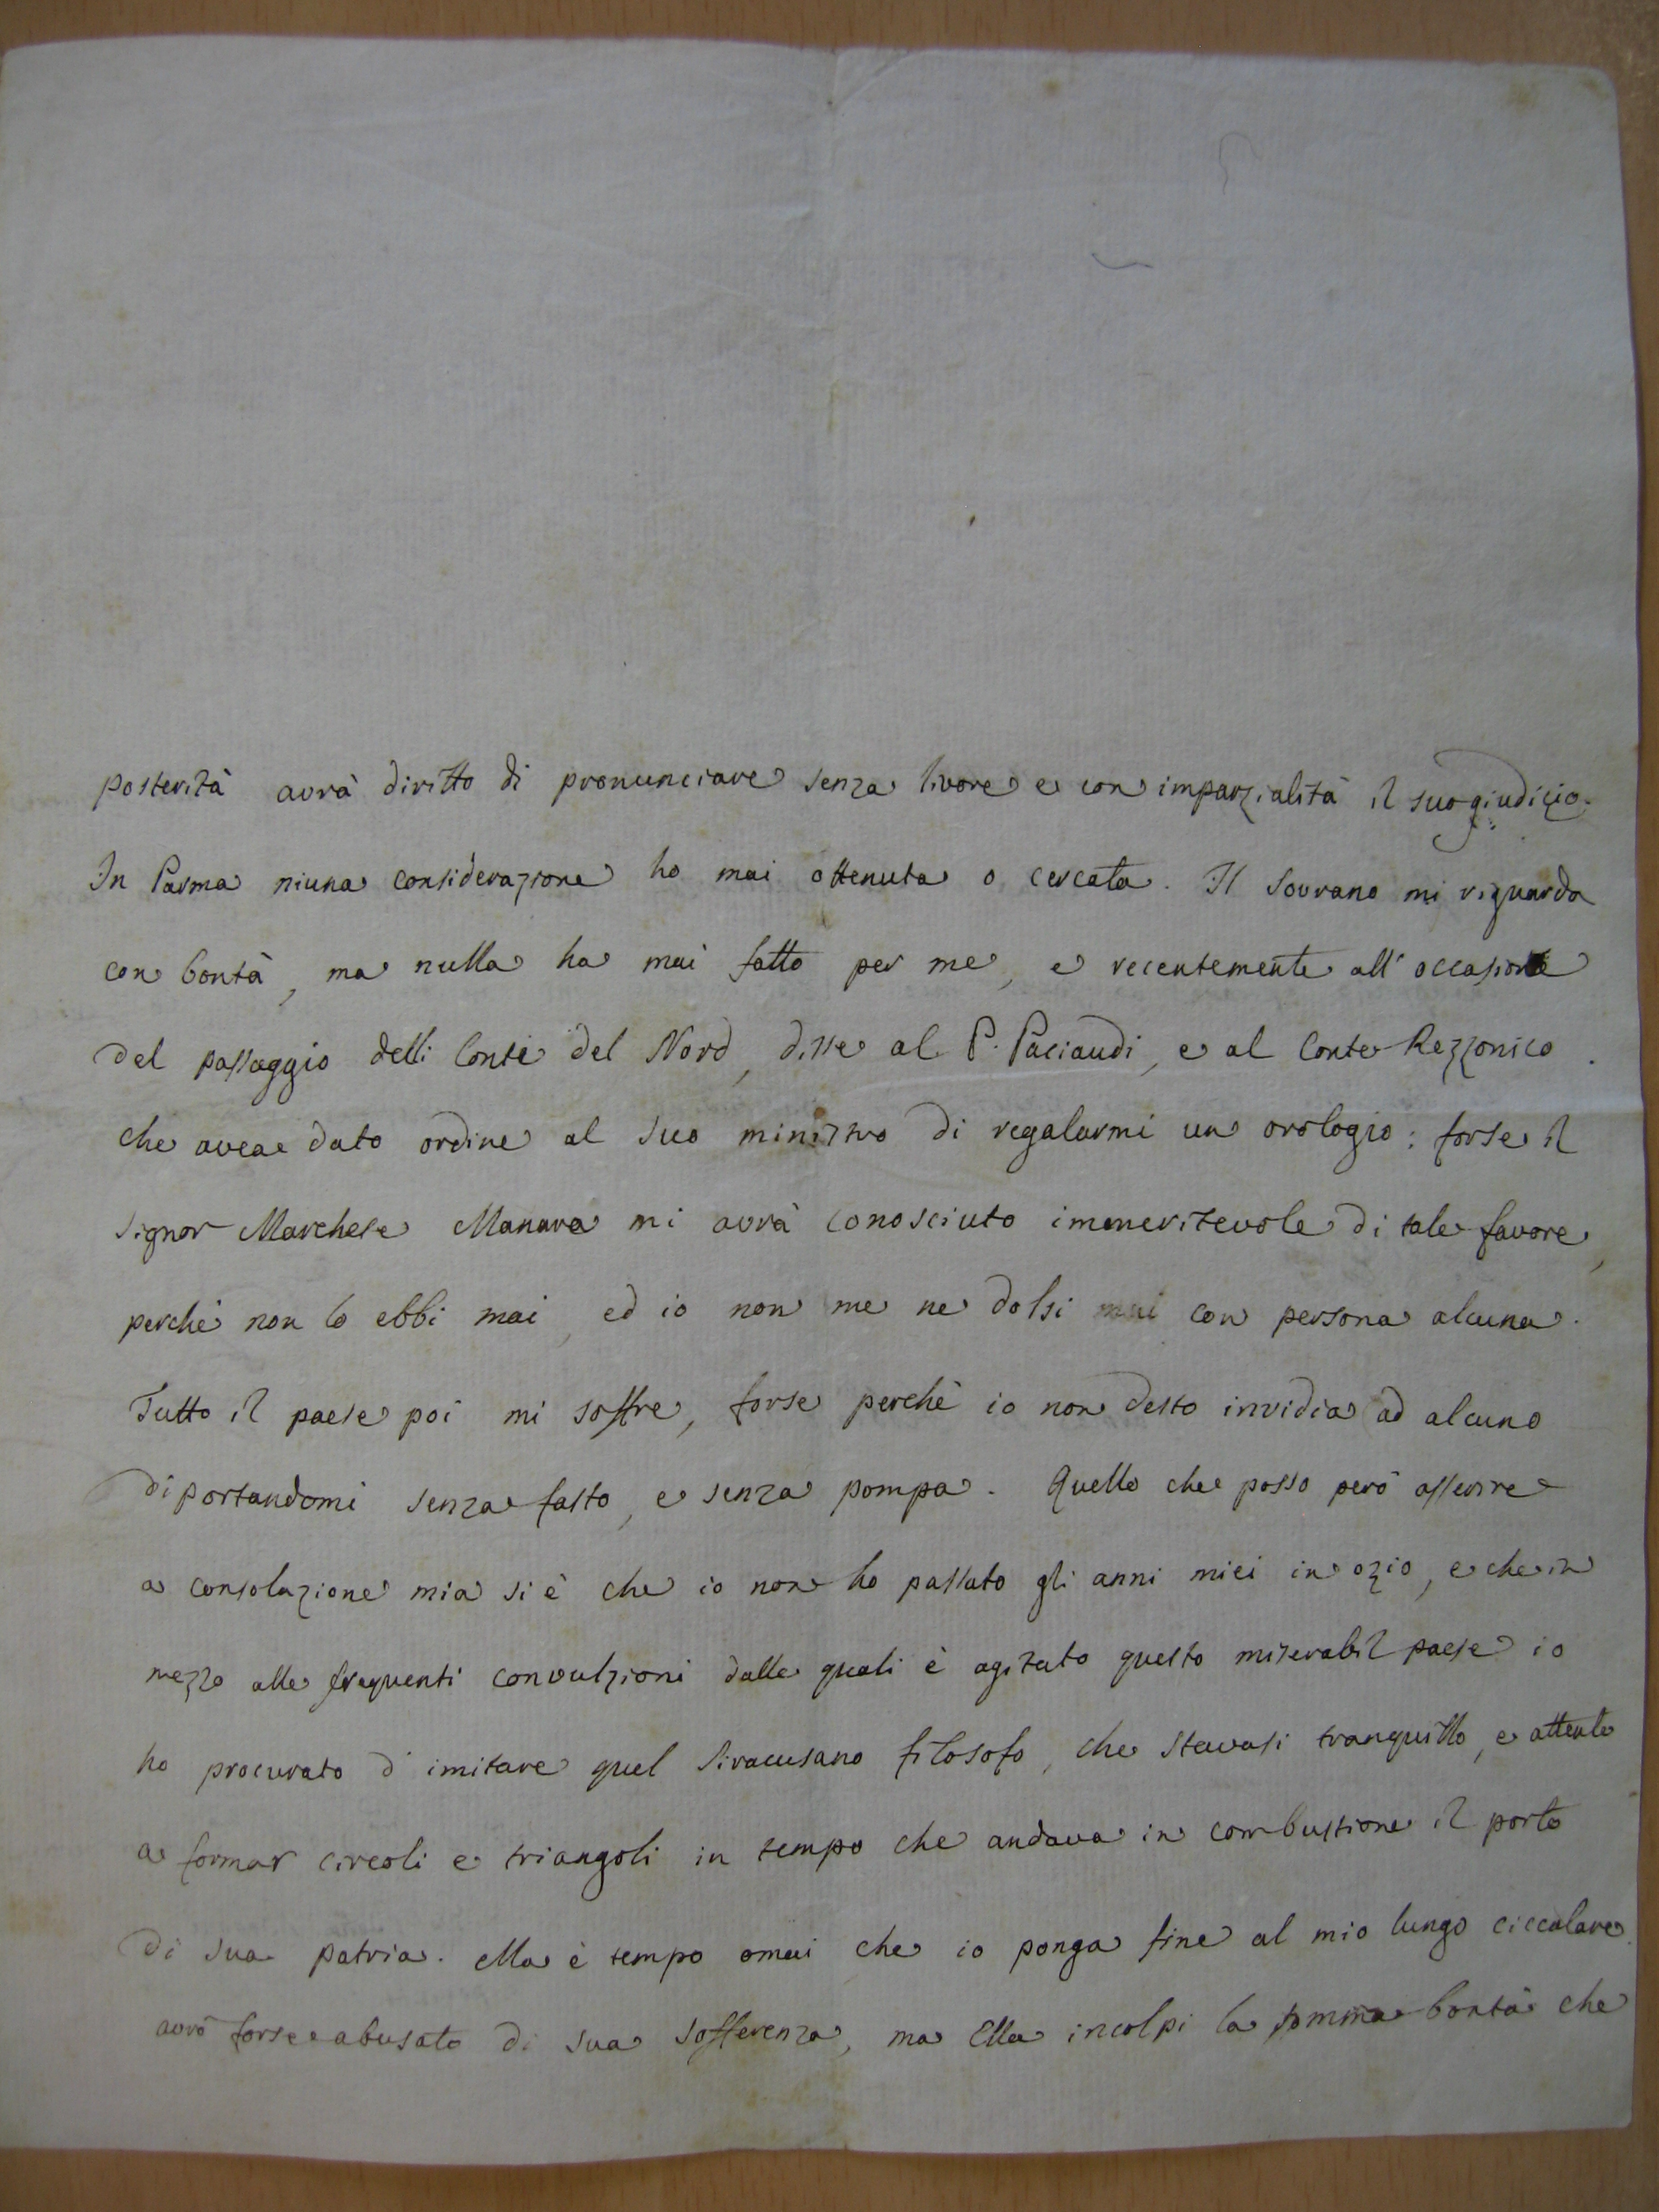 posterità avrà diritto di pronunciare senza livore e con imparzialità il suo giudizio.
In Parma niuna considerazione ho mai ottenuta o cercata. Il Sovrano mi riguarda
con bontà, ma nulla ha mai fatto per me, e recentemente all'occasione
del passaggio delli Conti del Nord, disse al P. Paciaudi, e al Conte Rezzonico
che avea dato ordine al suo ministro di regalarmi un orologio: forse il
signor Marchese Manara mi avrà conosciuto immeritevole di tale favore,
perchè non lo ebbi mai, ed io non me ne dolsi mai con persona alcuna.
Tutto il paese poi mi soffre, forse perchè io non desto invidia ad alcuno
diportandomi senza fasto, e senza pompa. Quello che posso però asserire
a consolazione mia si è che io non ho passato gli anni miei in ozio, e che in
mezzo alle frequenti convulzioni dalle quali è agitato questo miserabil paese io
ho procurato d'imitare quel Siracusano filosofo, che stavasi tranquillo, e attento
a formar circoli e triangoli in tempo che andava in combustione il porto
di sua patria. Ma è tempo omai che io ponga fine al mio lungo ciccalare.
avrò forse abusato di sua sofferenza, ma Ella incolpi la somma bontà che